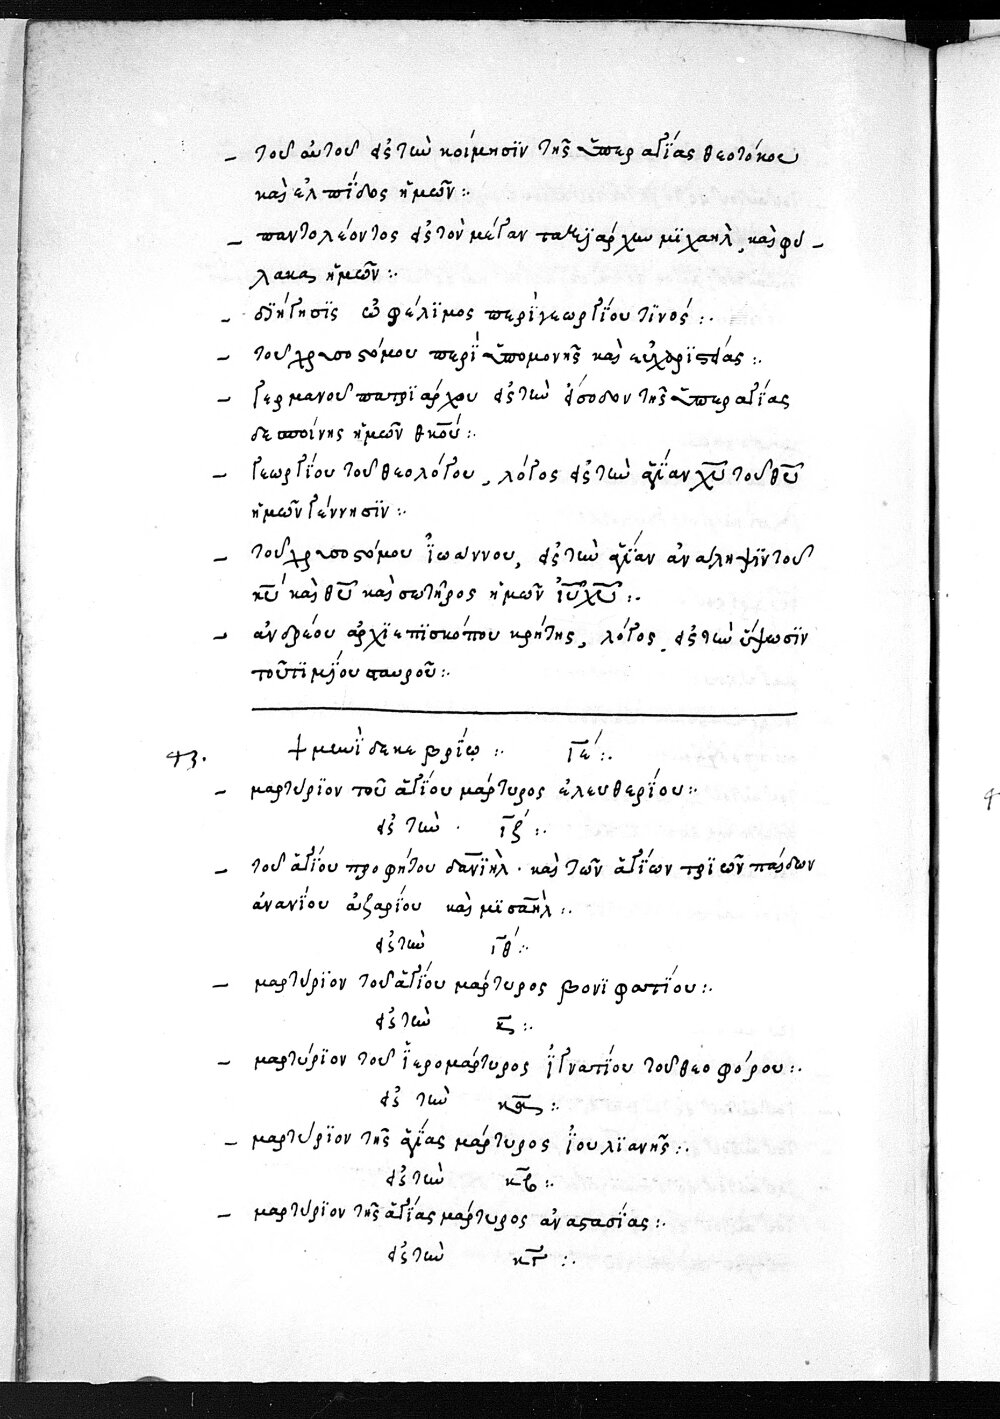 – τοῦ αὐτοῦ εἰς τὼ κοίμησϊν τῆς ὑπὲρ ἁγΐας θεοτόκου
καὶ ἐλπΐδος ἡμῶν :·
– παντολέοντος εἰς τὸν μέγαν ταξϊάρχω μϊχαὴλ, καὶ φύ –
λακα ἡμῶν :·
– διήγησϊς ὠφέλϊμος περὶ γεωργΐου τϊνός :·
– τοῦ χρυσοστόμου περὶ ὑπομονῆς καὶ εὐχαριστΐας :·
– γερμανοῦ πατρϊάρχου εἰς τὼ εἴσοδον τῆς ὑπὲρ ἁγΐας
δεσποίνης ἡμῶν θκ̅ου :·
– γεωργΐου τοῦ θεολόγου, λόγος εἰς τὼ ἁγΐαν χ̅υ̅ τοῦ θ̅υ̅
ἡμῶν γέννησϊν :·
– τοῦ χρυσοστόμου ἰ̈ωάννου, εἰς τὼ ἁγΐαν ἀνάληψϊν τοῦ
κ̅υ̅ καὶ θ̅υ̅ καὶ σωτῆρος ἡμῶν ἰ̅υ̅ χ̅υ̅ :·
– ἀνδρέου ἀρχϊεπϊσκόπου κρήτης, λόγος, εἰς τὼ ὕψωσϊν
τοῦ τϊμΐου σταυροῦ :·
43. + μεωὶ δεκεβρΐω :· ιε̅ :·
– μαρτύρϊον τοῦ ἁγΐου μάρτυρος ἐλευθερΐου :·
εἰς τὼ · ιζ̅ :·
– τοῦ ἁγΐου προφήτου δανϊὴλ · καὶ τῶν ἁγΐων τρϊῶν παίδων
ἀνανΐου ἀζαρΐου καὶ μϊσαὴλ :·
εἰς τὼ ιθ̅ :·
– μαρτύρϊον τοῦ ἁγΐου μάρτυρος βονϊφατΐου :·
εἰς τὼ κ̅ :·
– μαρτύρϊον τοῦ ἰ̈ερομάρτυρος ἰ̈γνατΐου τοῦ θεοφόρου :·
εἰς τὼ κα̅ :·
– μαρτύρϊον τῆς ἁγΐας μάρτυρος ἰ̈ουλϊανῆς :·
εἰς τὼ κβ̅ :·
– μαρτύρϊον τῆς ἁγΐας μάρτυρος ἀναστασΐας :·
εἰς τὼ κγ̅ :·